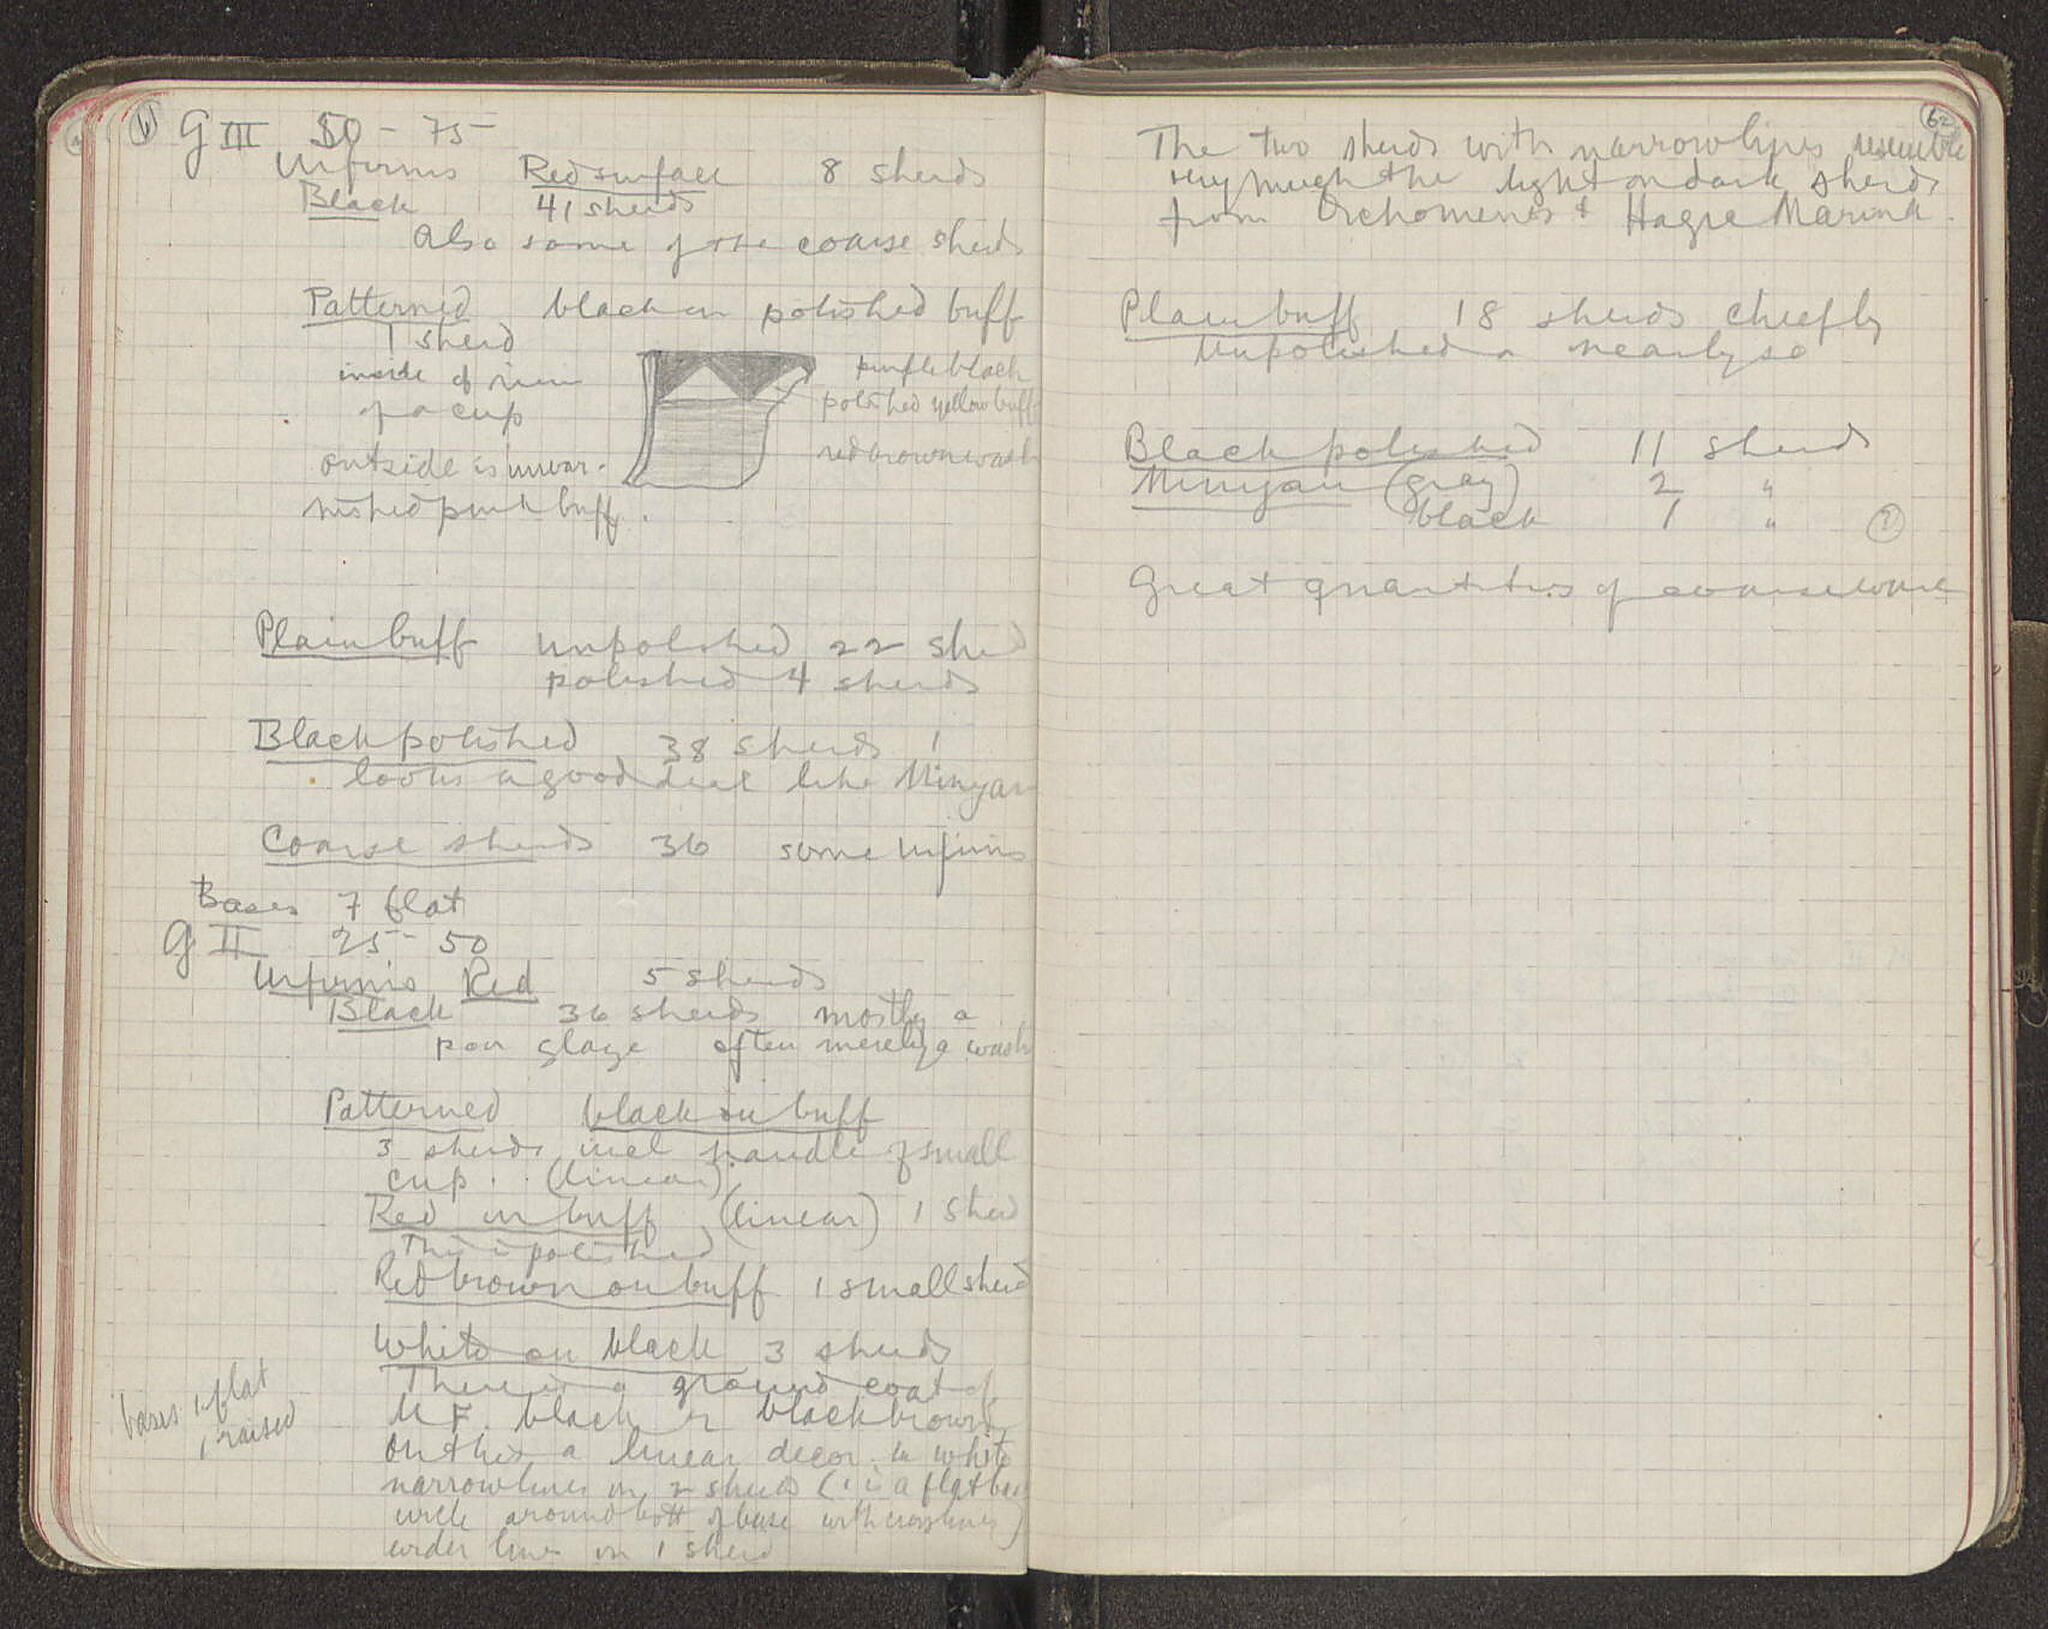 61
G III 50 - 75
Urfirnis Red surface 8 sherds
Black 41 sherds
Also some of the coarse sherds
Patterned black on polished buff
1 sherd
inside of rim
of a cup
outside is unvar-
nished pink buff.
purple black
polished yellow buff
red brown wash
Plain buff unpolished 22 sherd
polished 4 sherds
Black polished 38 sherds 1
looks a good deal like Minyan
Coarse sherds 36 some urfirnis
Bases 7 flat
G II 25 - 50
Urfirnis Red 5 sherds
Black 36 sherds mostly a
poor glaze often merely a wash
Patterned black on buff
3 sherds incl handle of small
cup. (linear)
Red on buff (linear) 1 sherd
This is polished
Red brown on buff 1 small sherd
White on black 3 sherds
There is a ground coat of
U F. black or black brown
On this a linear decor. in white
narrow lines on 2 sherds (1 is a flat base
circle around bott of base with cross lines)
wider lines on 1 sherd
bases 1 flat
1 raised
62
The two sherds with narrow lines resemble
very much the light on dark sherds
from Orchomenos & Hagia Marina.
Plain buff 18 sherds chiefly
unpolished or nearly so
Black polished 11 sherds
Minyan (gray) 2 "
black 1 " (?)
Great quantities of coarse ware